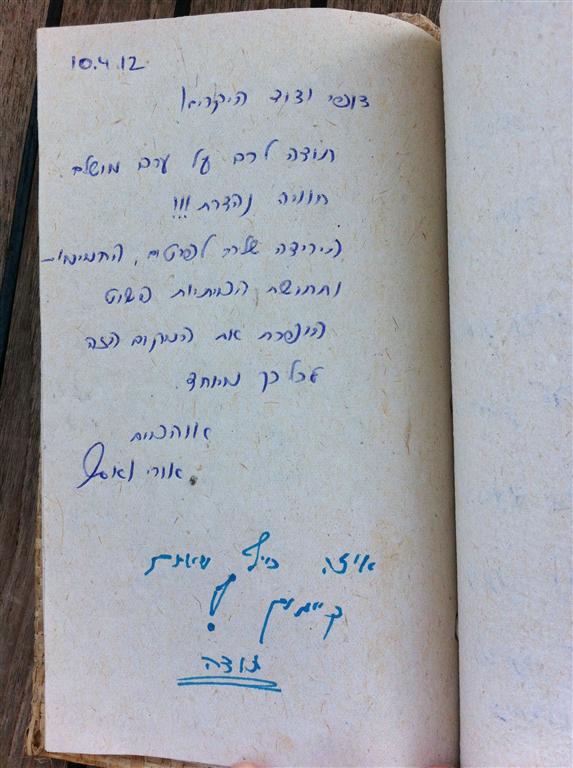 10.4.12
ודוד היקרים!
תודה רבה על ערב מושלם
חוויה נהדרת!!!
הירידה שלכם לפרטים, החמימות
ותחושת הביתיות פשוט
הופכת את המקום הזה
לכל כך מיוחד.
אוהבים
אורי
איזה כיף שאתם
קיימים!
תודה